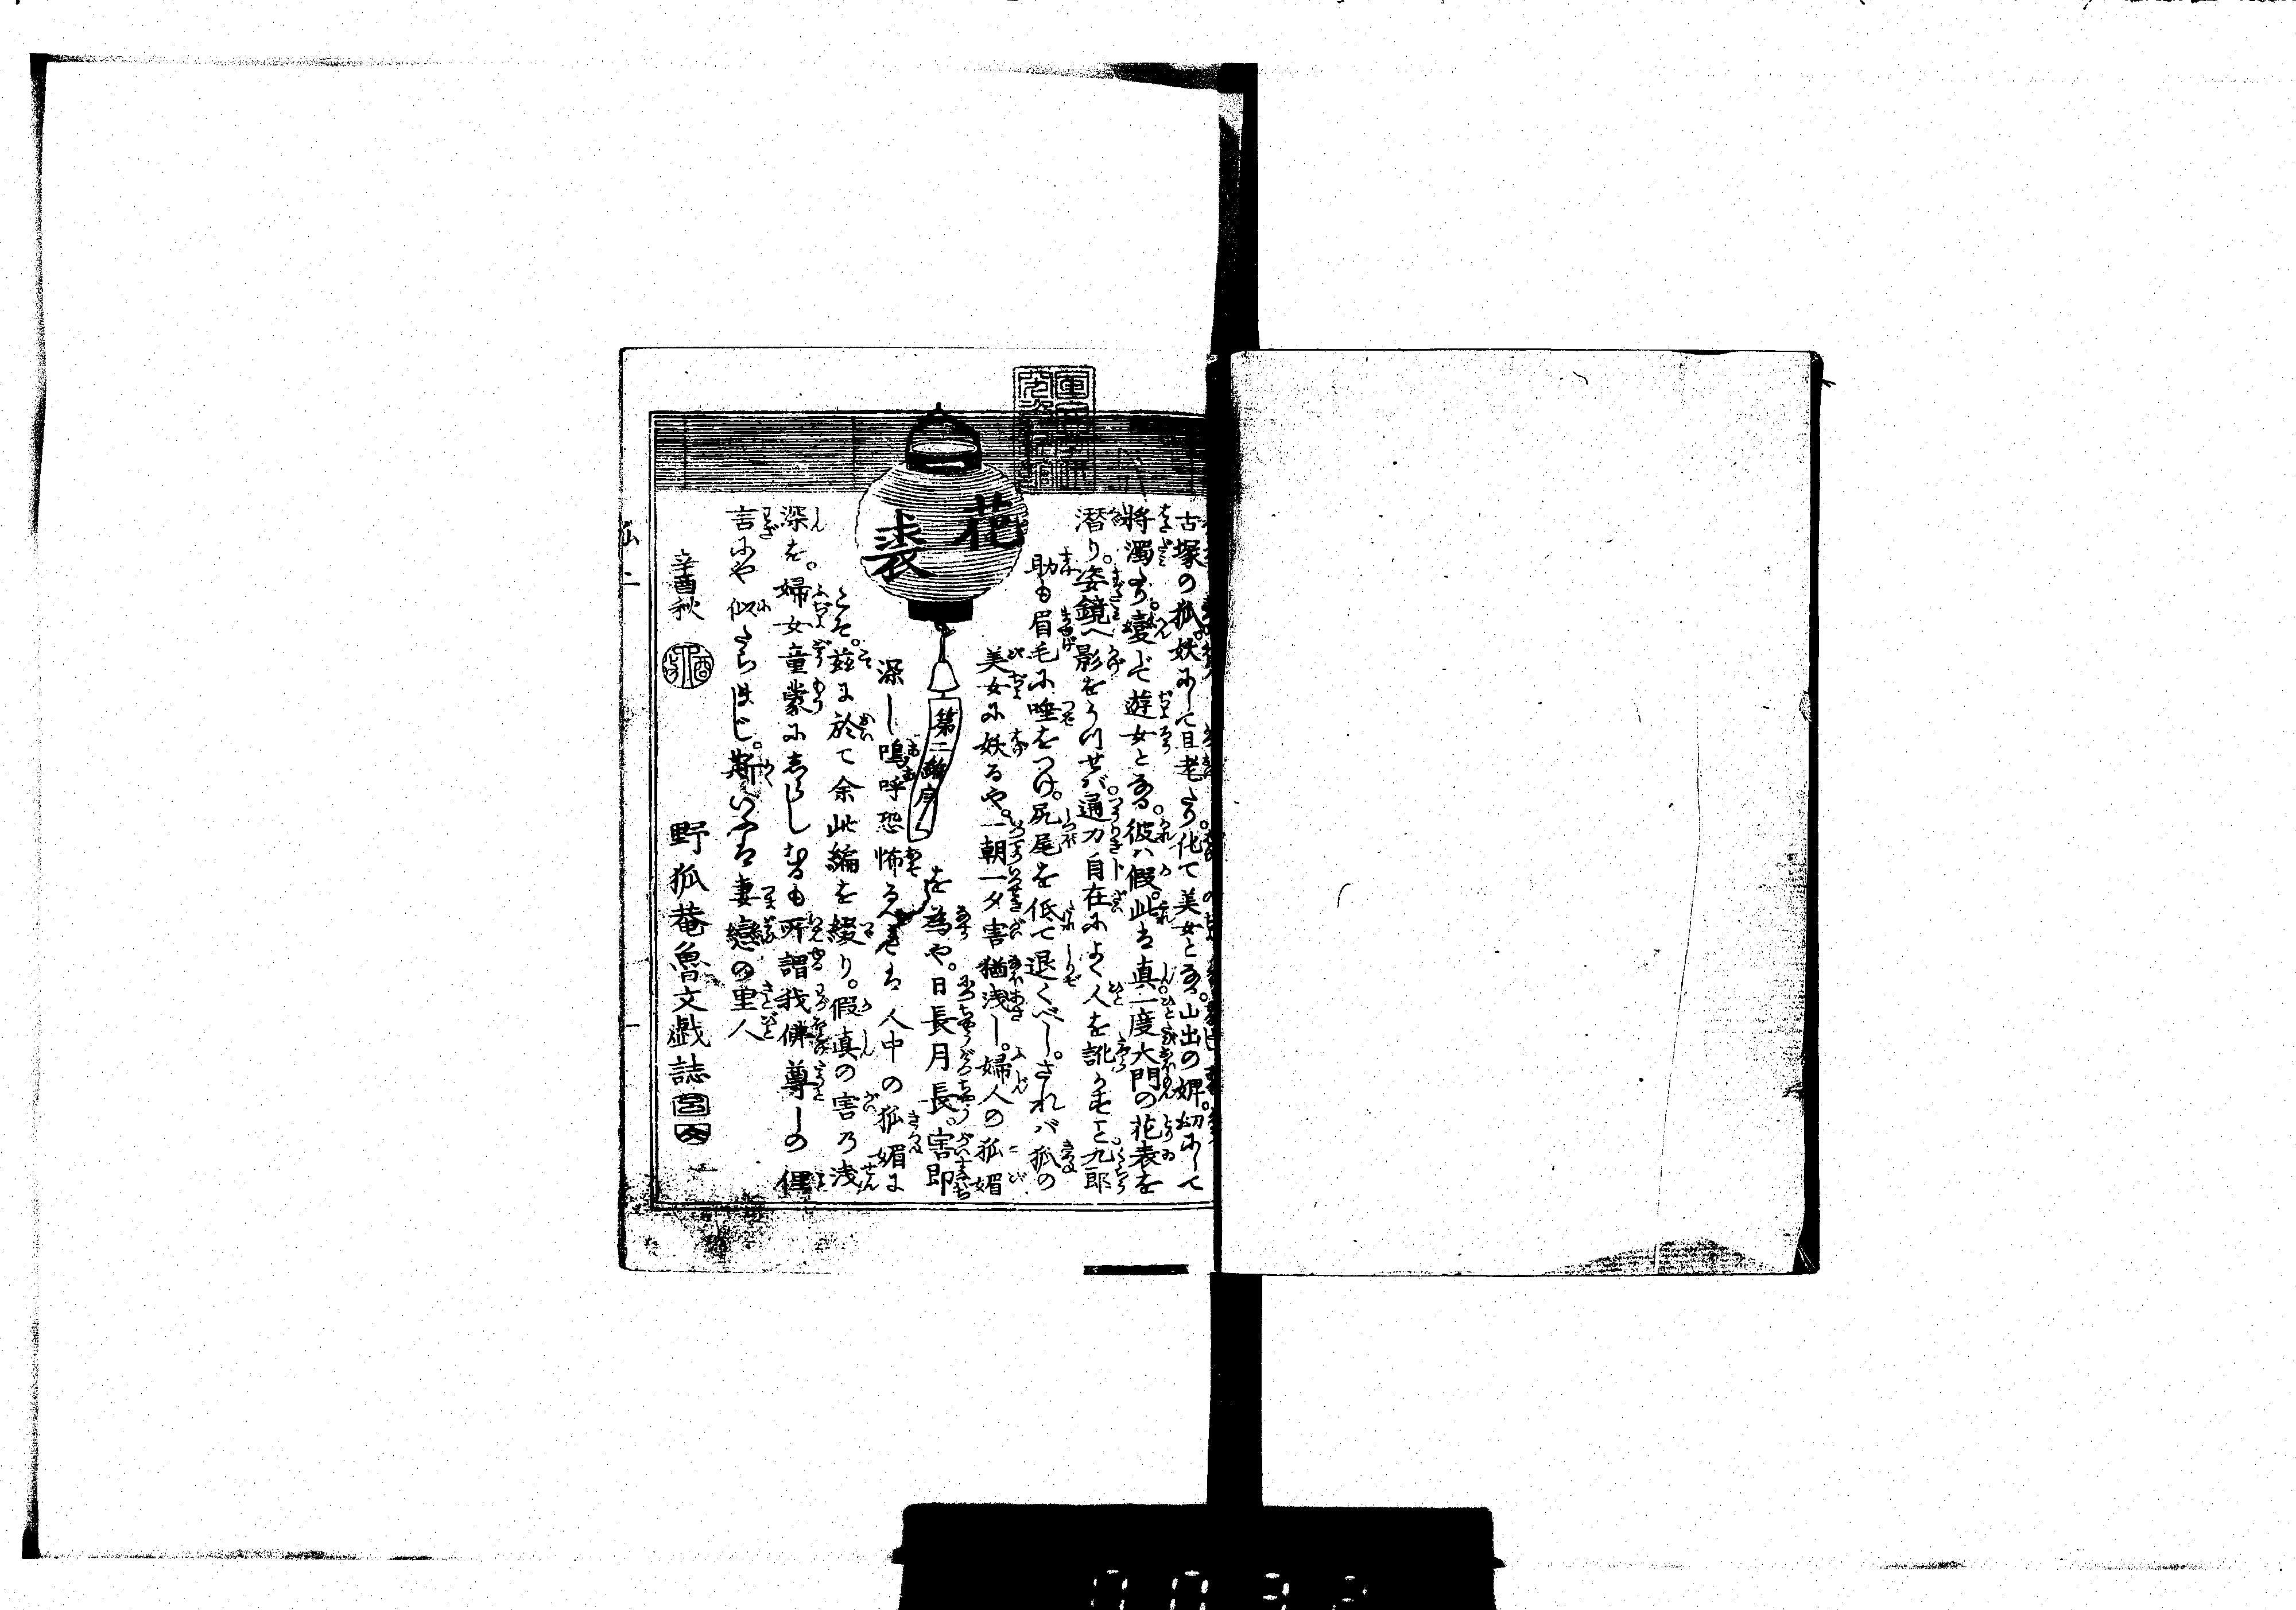 古塚の狐妖にして且老たり。化て美女となる。山出の婢幼にして
将濁たり。變じて遊女となる。彼ハ假。此は真。二度大門の花表を
潜り。姿鏡へ影をうつせバ。通力自在によく人を訛かすこと九郎
助も眉毛に唾をつけ。尻尾を低て退くべし。されバ狐の
美女に妖るや。一朝一夕害猶浅し。婦人の狐媚
を為や。日長月長。害即
深し嗚呼恐怖るべきは人中の狐媚に
こそ。茲に於て余此編を綴り。假真の害乃浅
深を。婦女童蒙にしらしむるも所謂我佛尊しの俚
言にや似たらまほし。斯いふは妻戀の里人
辛酉秋
野狐菴魯文戯誌
花
裘
第二編序
狐二
一